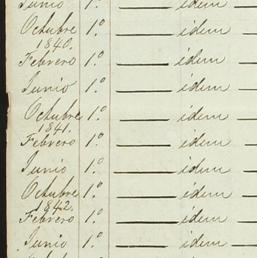 Junio 1.º —— idem
Octubre 1.º —— idem
1840.
Febrero 1.º —— idem
Junio 1.º —— idem
Octubre 1.º —— idem
1841.
Febrero 1.º —— idem
Junio 1.º —— idem
Octubre 1.º —— idem
1842.
Febrero 1.º —— idem
Junio 1.º —— idem